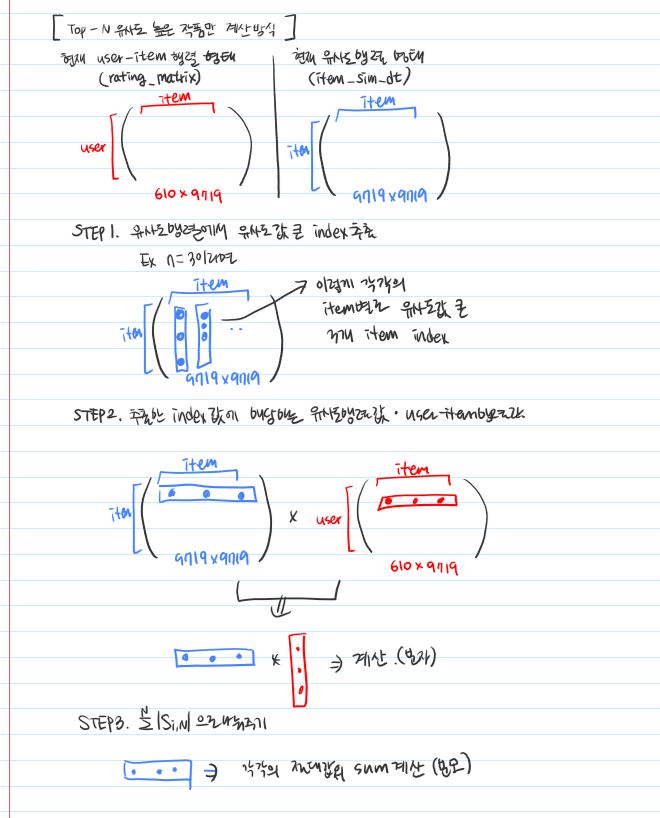 [ Top-N 유사도 높은 작품만 계산방식 ]
현재 user-item 행렬 형태
(rating_matrix)
item
user
610 x 9719
현재 유사도행렬 형태
(item_sim_dt)
item
item
9719 x 9719
STEP 1. 유사도행렬에서 유사도값 큰 index 추출
Ex n=3이라면
item
item
9719 x 9719
→ 이렇게 각각의
item별로 유사도값 큰
3개 item index
STEP2. 추출한 index 값에 해당하는 유사도행렬값 · user-item행렬값.
item
item
9719 x 9719
x
item
user
610 x 9719
* ⇒ 계산.(분자)
STEP3. N Σ |Si,N| 으로 나눠주기
⇒ 각각의 절대값의 sum 계산 (분모)